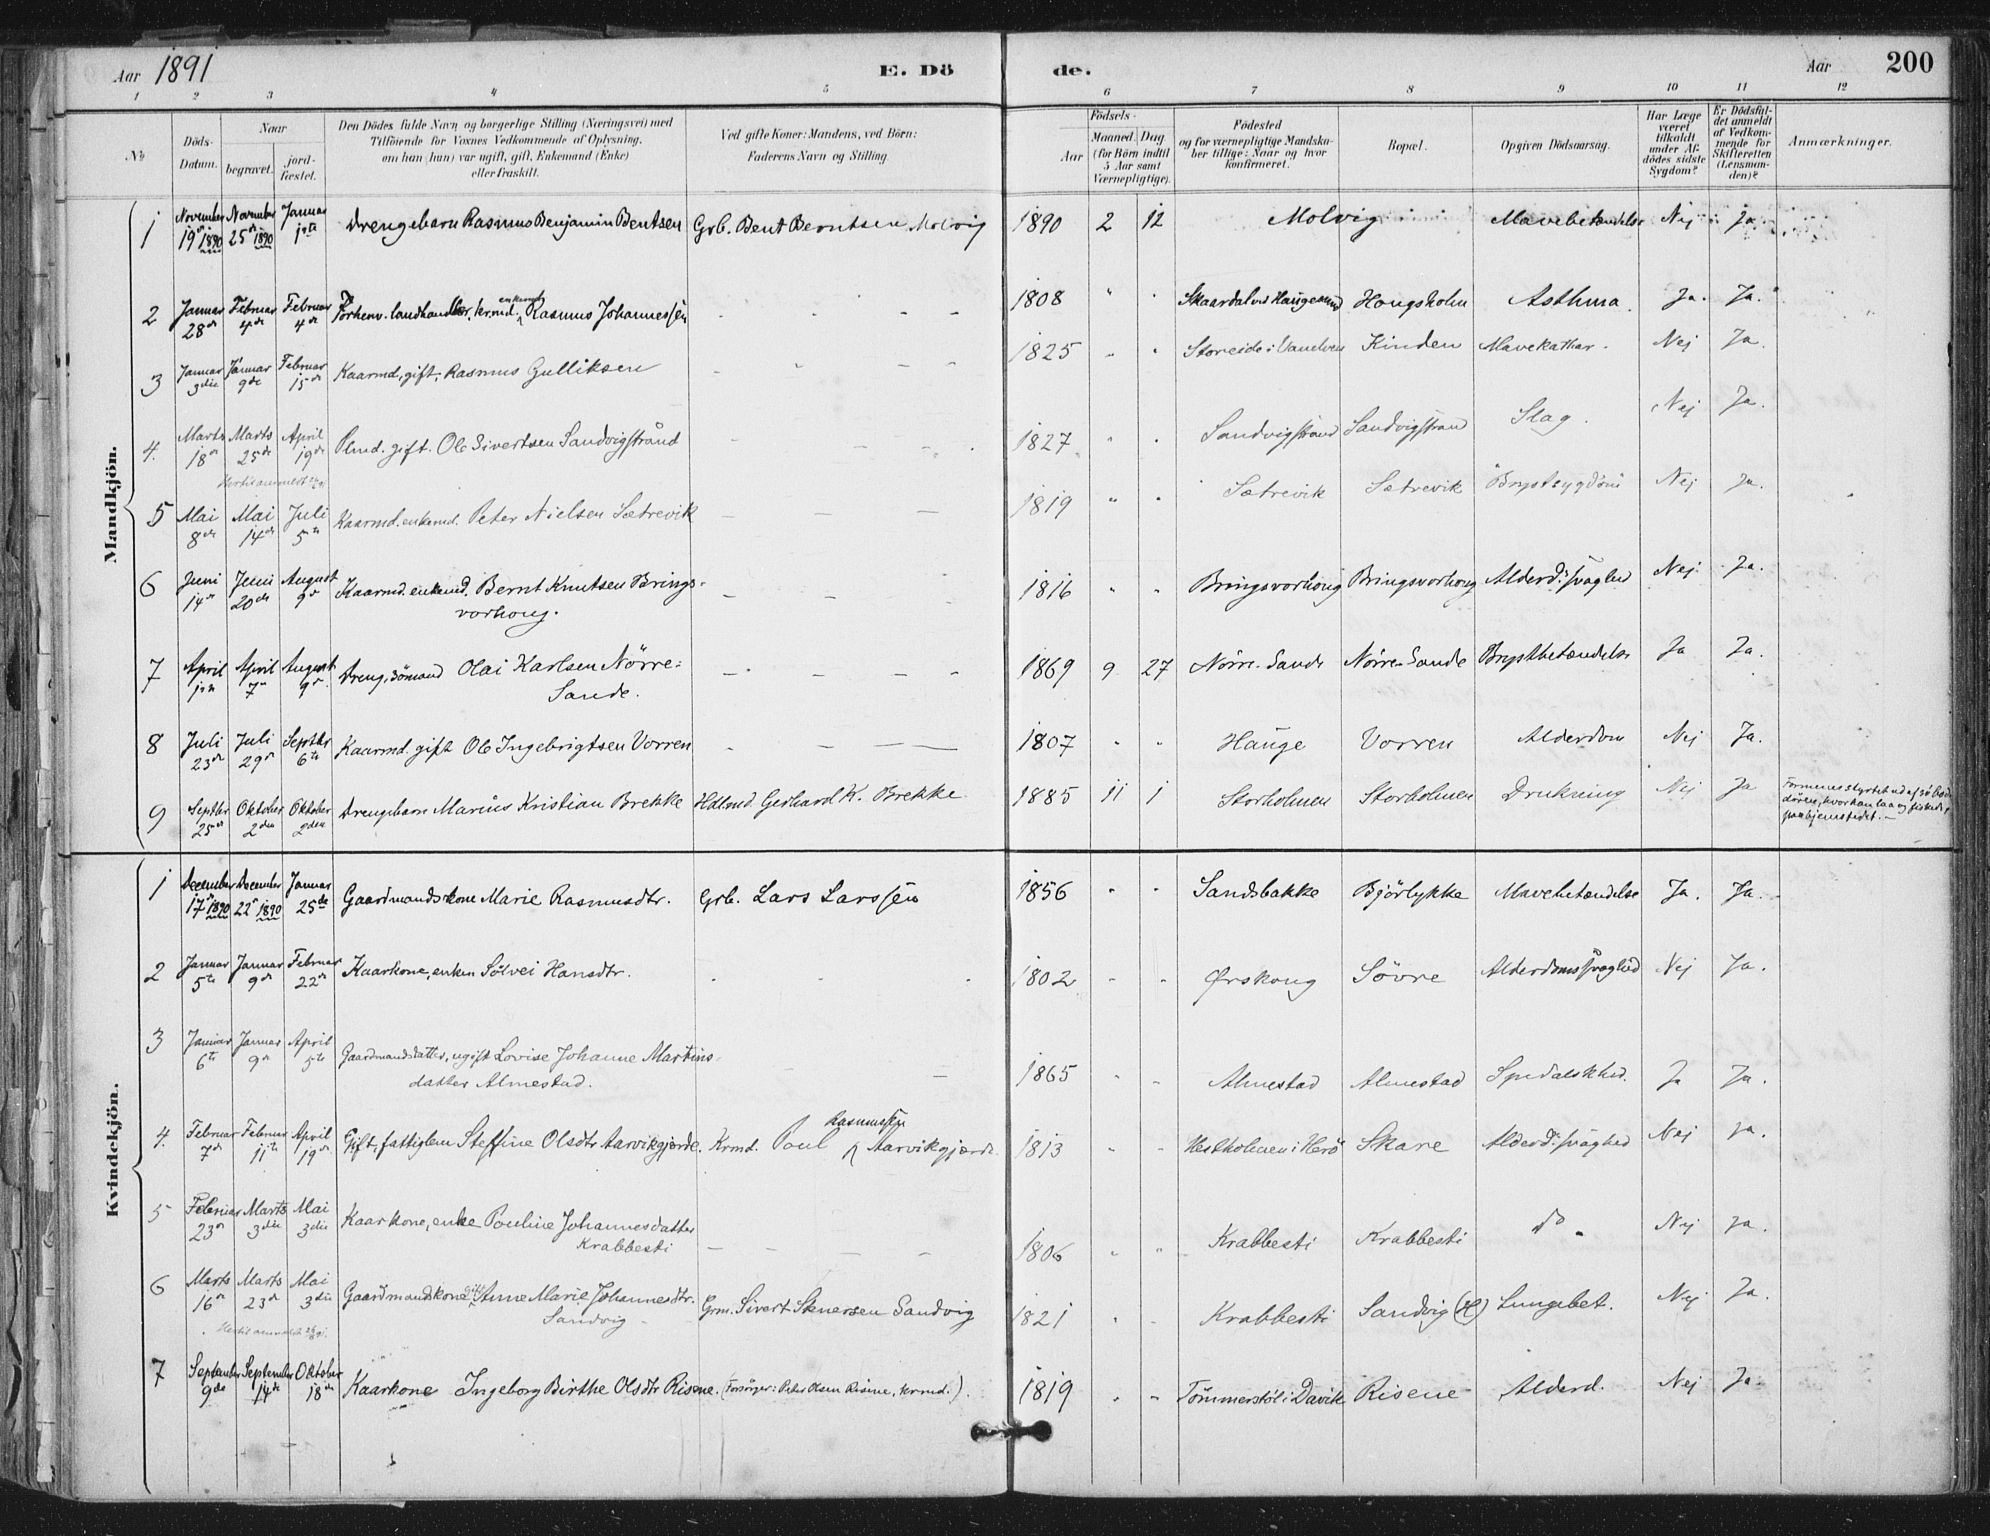 Aar 1891
E. Dö
de.
Aar
200
1 2 3 4 5 6 7 8 9 10 11 12
No
Döds-
Datum.
Naar
begravet.
jord-
fæstet.
Den Dödes fulde Navn og borgerlige Stilling (Næringsvei) med
Tilföiende for Voxnes Vedkommende af Oplysning,
om han (hun) var ugift, gift, Enkemand (Enke)
eller fraskilt.
Ved gifte Koner: Mandens, ved Börn:
Faderens Navn og Stilling
Födsels-
Aar
Maaned. Dag
(for Börn indtil
5 Aar samt
Værnepligtige).
Födested
og for værnepligtige Mandska-
ber tillige: Naar og hvor
konfirmeret.
Bopæl.
Opgiven Dödsaarsag.
Har Læge
været
tilkaldt
under Af-
dödes sidste
Sygdom?
Er Dödsfal-
det anmeldt
af Vedkom-
mende for
Skifteretten
(Lensman-
den)?
Anmærkninger.
Mandkjön.
1 November 19de 1890 November 25de 1890 Januar 1ste Drengebarn Rasmus Benjamin Bentsen Grb. Bent Berntsen Molvig 1890 2 12 Molvig Mavebetændelse Nej Ja.
2 Januar 28de Februar 4de Februar 4de Forhenv. landhandler, krmd. enkemd Rasmus Johannessen 1808 " " Skaardal ved Haugesund Hougsholm Asthma. Ja. Ja.
3 Januar 3die Januar 9de Februar 15de Kaarmd, gift, Rasmus Gulliksen 1825 " " Storeide i Vanelven Kinden Mavekathar. Nej Ja.
4. Marts 18de Marts 25de April 19de Plmd. gift. Ole Sivertsen Sandvigstrand 1827 " " Sandvigstrand Sandvigstrand Slag. Nej Ja.
Hertil anmeldt
5 Mai 8de Mai 14de Juli 5te Kaarmd. enkemd. Peter Nielsen Sætrevik 1819 " " Sætrevik Sætrevik Brystsygdom Nej Ja.
6 Juni 14de Juni 20de August 9de Kaarmd. enkemd. Bernt Knutsen Brings-
vorhoug. 1816 " " Bringsvorhoug Bringsvorhoug Alderd. svaghed Nej. Ja.
7 April 1ste April 7de August 9de Dreng, Sömand Olai Karlsen Nörre-
Sande. 1869 9 27 Nörre-Sande Nörre-Sande Brystbetændelse Ja Ja.
8 Juli 23de Juli 29de Septbr 6te Kaarmd. gift Ole Ingebrigtsen Vorren 1807 " " Hauge Vorren Alderdom Nej Ja.
9 Septbr 25de Oktober 2den Oktober 2den Drengebarn Marius Kristian Brekke Hdlmd. Gerhard K. Brekke 1885 11 1 Storholmen Storholmen Drukning Nej Ja Formenes styrtet ud af söbod-
dören, hvor han laa og fiskede,
paa hjemstedet.
Kvindekjön.
1 December 17de 1890 December 22de 1890 Januar 25de Gaardmandskone Marie Rasmusdtr. Grb. Lars Larssen 1856 " " Sandsbakke Bjørlykke Mavebetændelse Ja. Ja.
2 Januar 5te Januar 9de Februar 22de Kaarkone, enken Sølvei Hansdtr. 1802 " " Ørskoug Sövre Alderdomssvaghed Nej Ja.
3 Januar 6te Januar 9de April 5te Gaardmandsdatter, ugift Lovise Johanne Martins-
datter Almestad. 1865 " " Almestad Almestad Spedalskhed. Ja Ja.
4. Februar 7de Februar 11te April 19de Gift, fattiglem Steffine Olsdtr Aarvikgjærde. Krmd. Poul Rasmussen Aarvikgjærde 1813 " " Hestholmen i Herö Skare Alderd. svaghed Nej Ja.
5 Februar 23de Marts 3die Mai 3die Kaarkone, enke Pouline Johannesdatter
Krabbesti 1806 " " Krabbesti Krabbesti do Nej Ja.
6 Marts 16de Marts 23de Mai 3die Gaardmandskone gift Anne Marie Johannesdtr.
Sandvig Grm. Sivert Stenersen Sandvig 1821 " " Krabbesti Sandvig (H) Lungebet. Nej Ja.
Hertil anmeldt
7 September 9de September 14de Oktober 18de Kaarkone Ingeborg Birthe Olsdtr Risene. (Forsörger: Peter Olsen Risene, krmd.). 1819 " " Tömmerstöl i Davik Risene Alderd. Nej Ja.